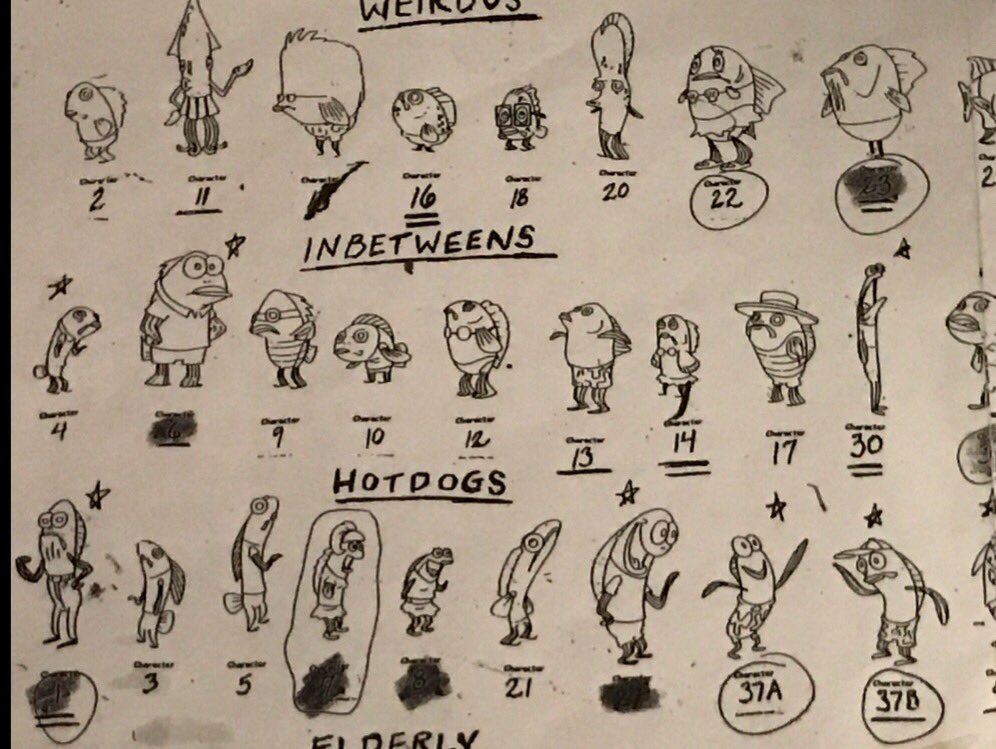 WEIRDOS
Character Character Character Character Character Character Character
2 11 15 16 18 20 22 23 2
INBETWEENS
Character Character Character Character Character Character Character Character Character
4 6 9 10 12 13 14 17 30
HOTDOGS
Character Character Character Character Character Character Character
1 3 5 7 8 21 37A 37B
ELDERLY